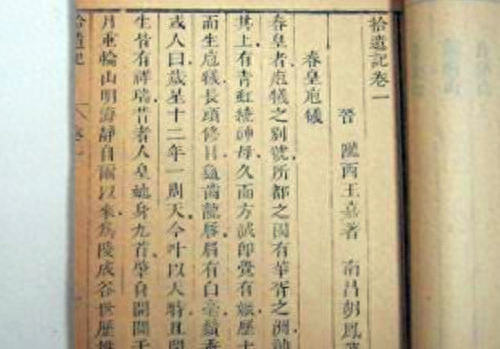 拾遺記卷一
晉 隴西王嘉著 南昌胡鳳
春皇庖犧
春皇者庖犧之別號所都之國有華胥之洲
其上有青虹繞神母久而方滅即覺有娠歷十
而生庖犧長頭修目龜齒龍唇眉有白毫鬚垂
或人曰歲星十二年一周天今叶以天時且聞
生皆有祥瑞昔者人皇蛇身九首肇自開闢于
月重輪山明海靜自爾以來爲陵成谷世歷推
拾遺記 卷一